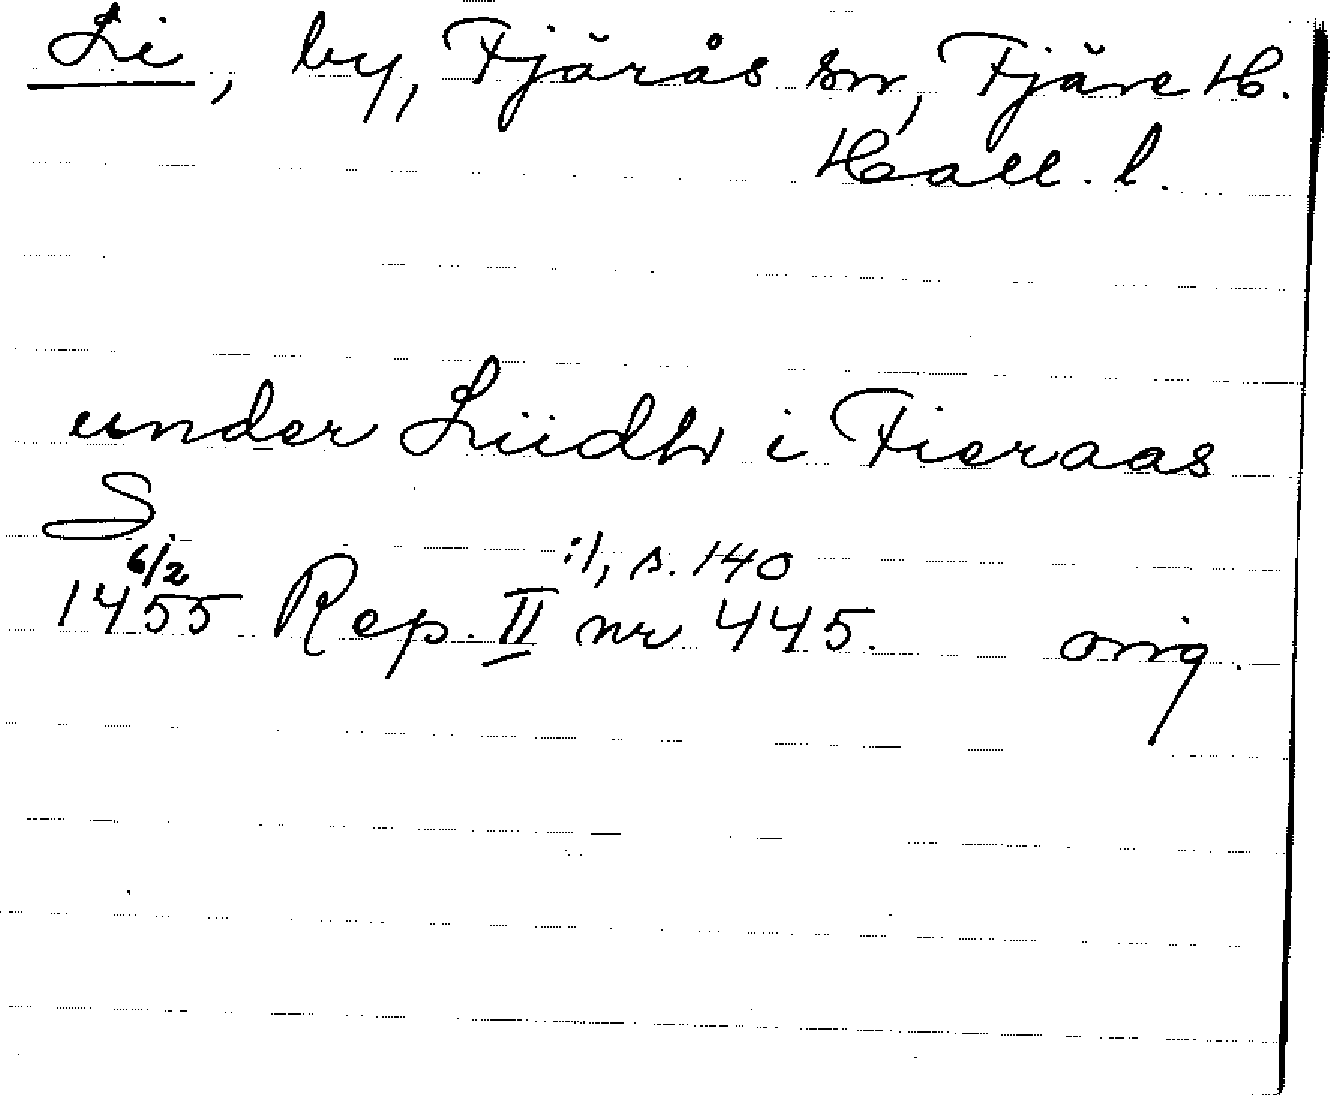 Li, by, Fjärås sn, Fjäre H.
Hall. l.
under Liidh i Fieraas
S
6/2 :1, s. 140
1455 Rep. II nr 445. orig.